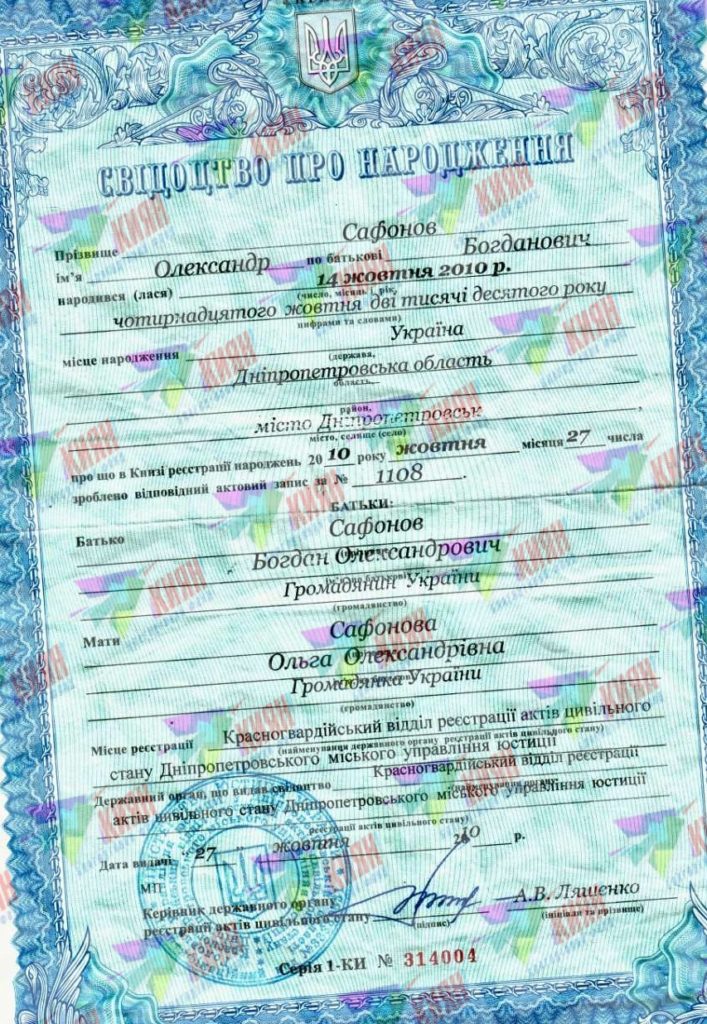 СВІДОЦТВО ПРО НАРОДЖЕННЯ
Прізвище Сафонов
ім'я Олександр по батькові Богданович
народився (лася) 14 жовтня 2010 р.
(число, місяць і рік,
чотирнадцятого жовтня дві тисячі десятого року
цифрами та словами)
місце народження Україна
(держава,
Дніпропетровська область
область,
район,
місто Дніпропетровськ
місто, селище (село)
про що в Книзі реєстрації народжень 2010 року жовтня місяця 27 числа
зроблено відповідний актовий запис за № 1108
БАТЬКИ:
Батько Сафонов
Богдан Олександрович
Громадянин України
(громадянство)
Мати Сафонова
Ольга Олександрівна
Громадянка України
(громадянство)
Місце реєстрації Красногвардійський відділ реєстрації актів цивільного
(найменування державного органу реєстрації актів цивільного стану)
стану Дніпропетровського міського управління юстиції
Державний орган, що видав свідоцтво Красногвардійський відділ реєстрації
(найменування органу
актів цивільного стану Дніпропетровського міського управління юстиції
реєстрації актів цивільного стану)
Дата видачі "27" жовтня 2010 р.
МП
Керівник державного органу
реєстрації актів цивільного стану А.В. Ляшенко
(підпис) (ініціали та прізвище)
Серія 1-КИ № 314004
КИЯН